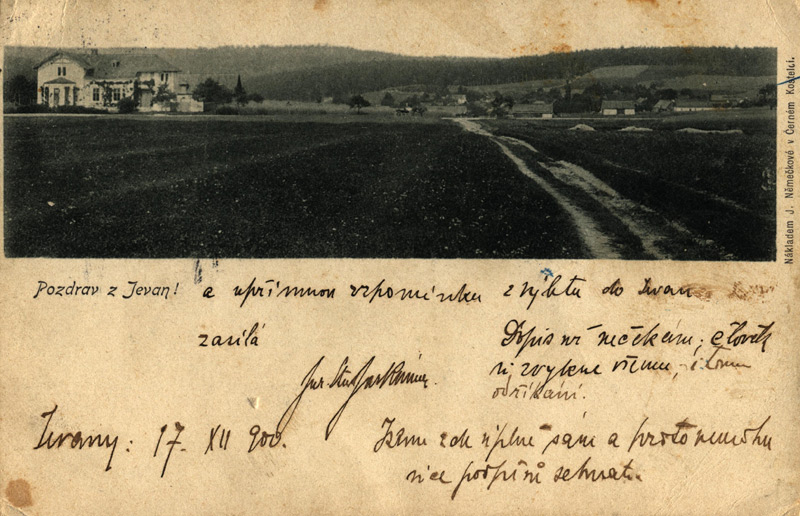 Nákladem J. Němečkové v Černém Kostelci.
Pozdrav z Jevan! a upřímnou vzpomínku z výletu do Jevan
zasílá
Dopis už nečekám; člověk
si zvykne všemu, i tomu
odříkání.
Jevany: 17. XII 900.
Jsem zde úplně sám a proto nemohu
více podpisů sehnat.